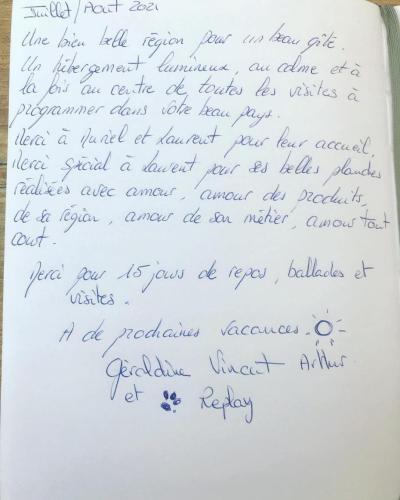 Juillet/Août 2021
Une bien belle région pour un beau gîte.
Un hébergement lumineux, au calme et à
la fois au centre de toutes les visites à
programmer dans votre beau pays.
Merci à Muriel et Laurent pour leur accueil,
Merci spécial à Laurent pour ses belles planches
réalisées avec amour, amour des produits,
de sa région, amour de son métier, amour tout
court.
Merci pour 15 jours de repos, ballades et
visites.
A de prochaines vacances.
Géraldine Vincent Arthur
et Replay